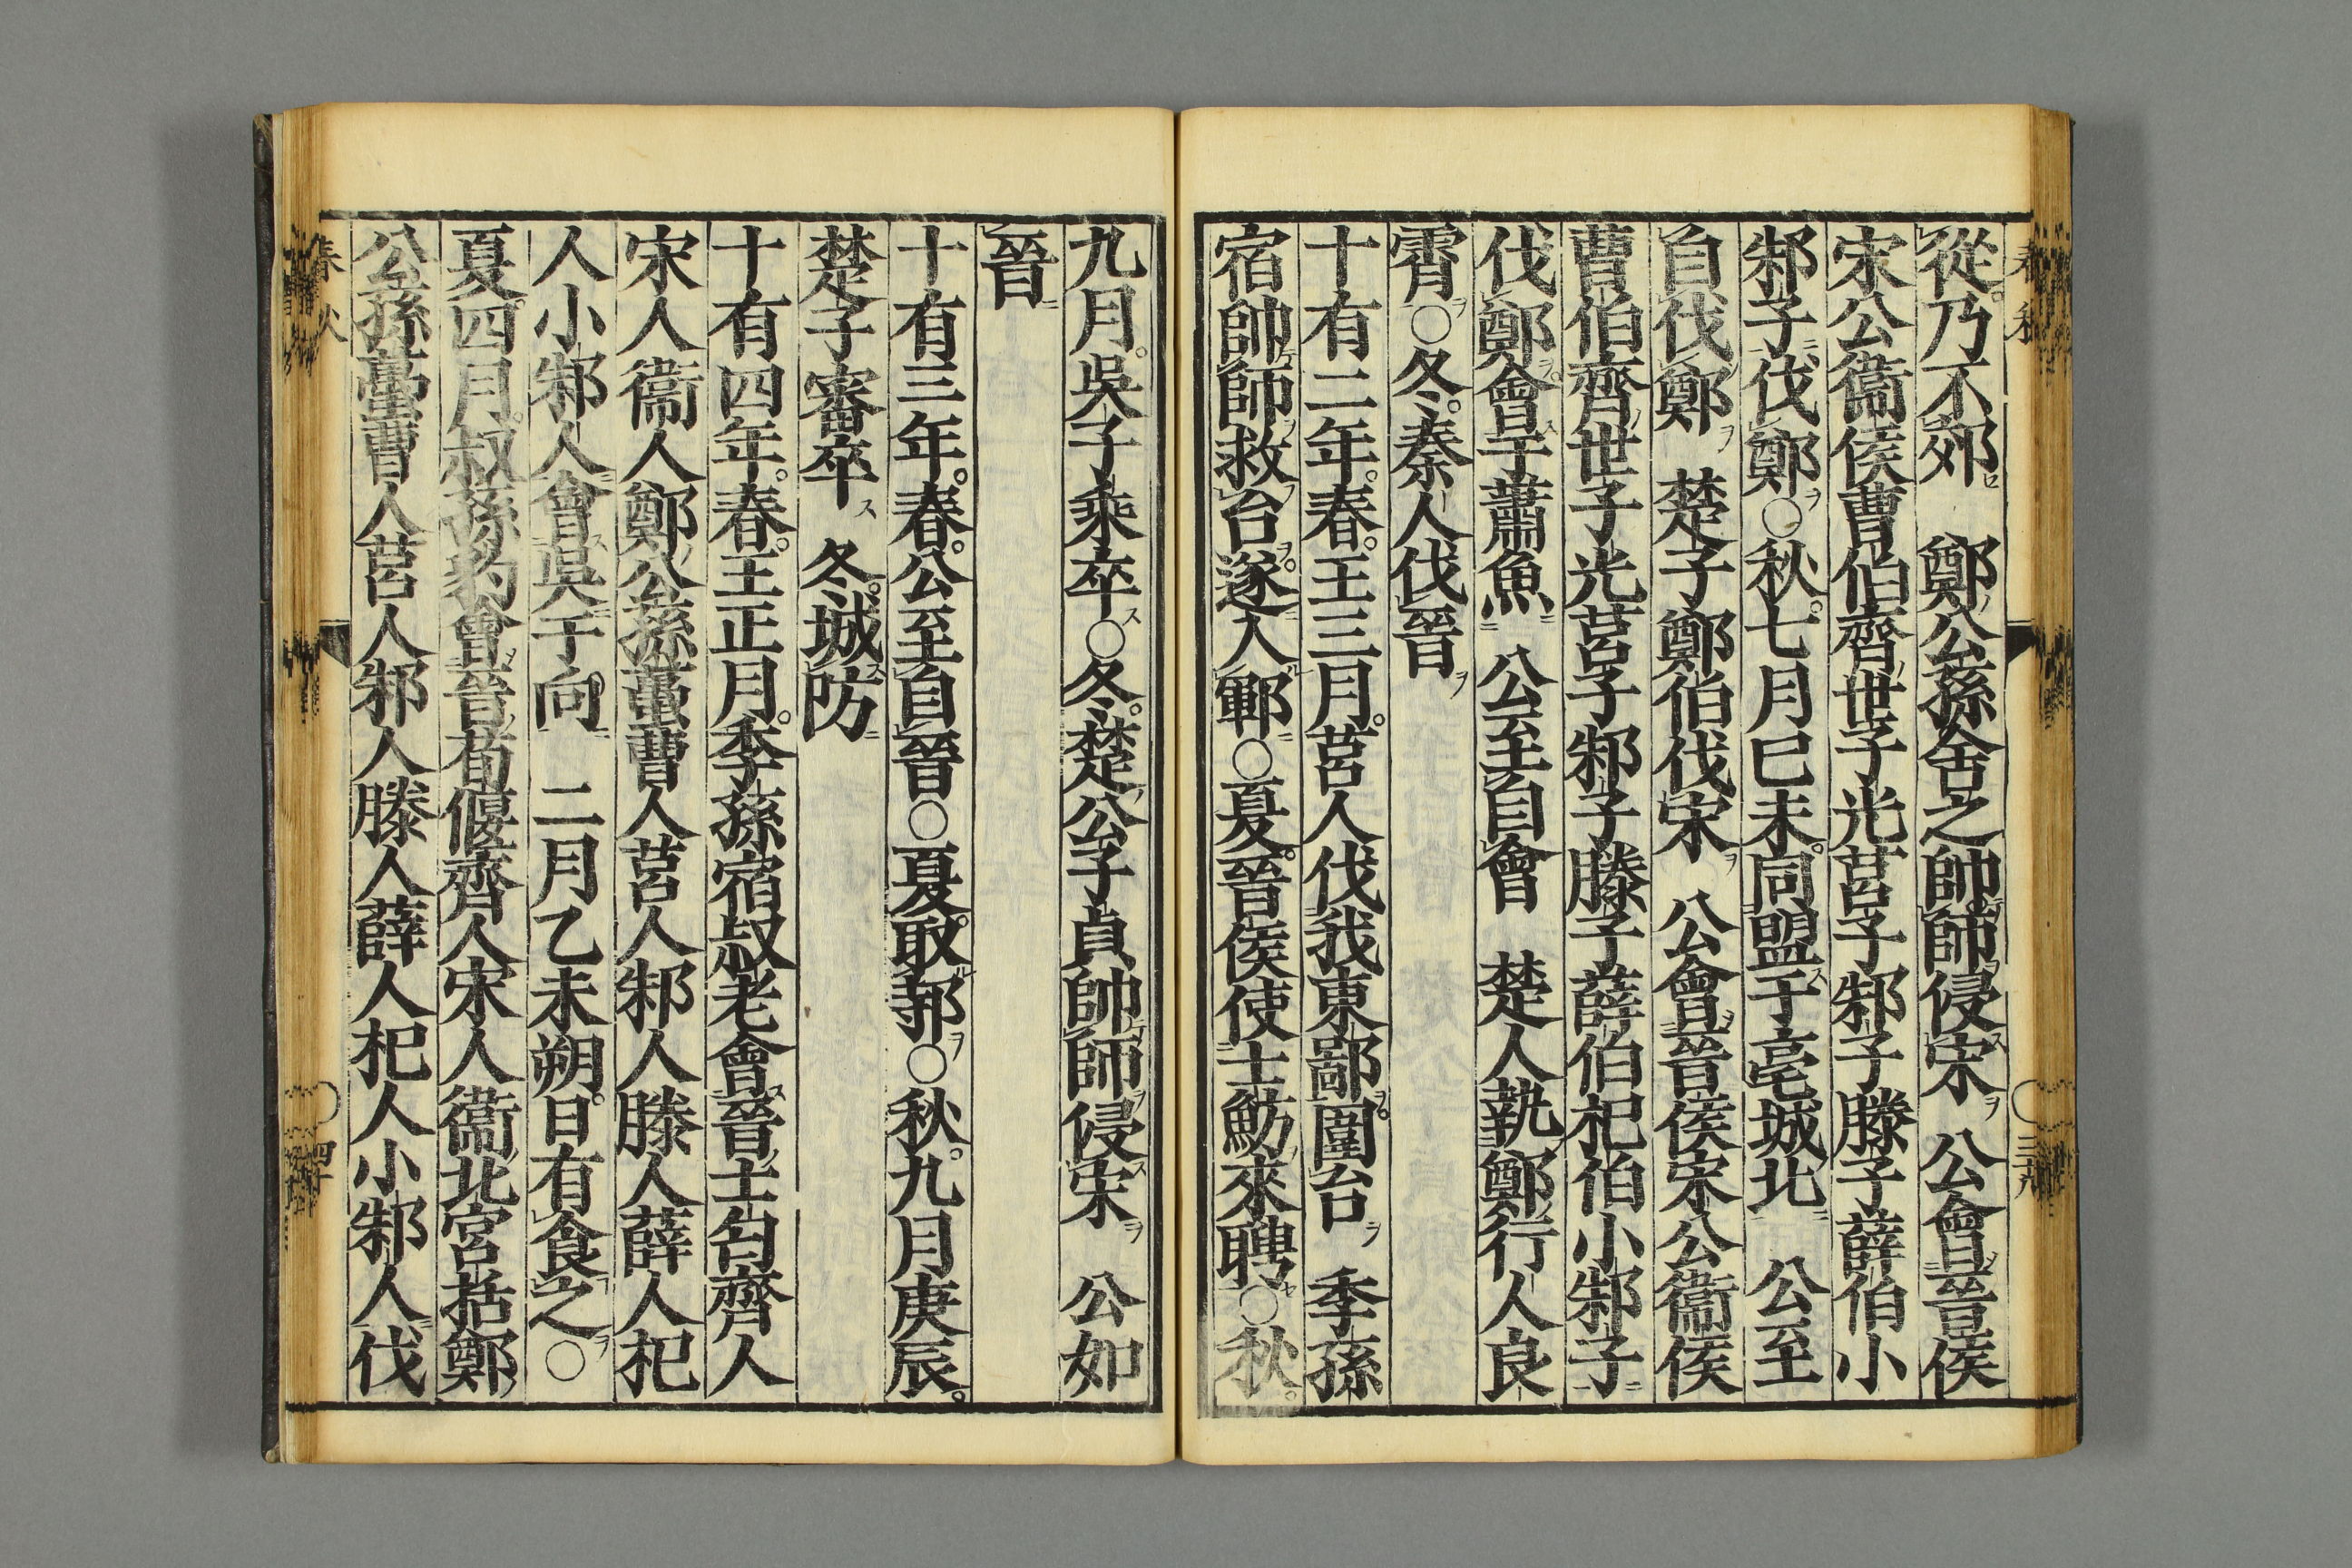 從乃不郊　鄭公孫舍之帥師侵宋　公會晉侯
宋公衞侯曹伯齊世子光莒子邾子滕子薛伯小
邾子伐鄭○秋七月巳未同盟于亳城北　公至
自伐鄭　楚子鄭伯伐宋　公會晉侯宋公衞侯
曹伯齊世子光莒子邾子滕子薛伯杞伯小邾子
伐鄭會于蕭魚　公至自會　楚人執鄭行人良
霄○冬秦人伐晉
十有二年春王三月莒人伐我東鄙圍台　季孫
宿帥師救台遂入鄆○夏晉侯使士魴來聘○秋
九月吳子乘卒○冬楚公子貞帥師侵宋　公如
晉
十有三年春公至自晉○夏取邿○秋九月庚辰
楚子審卒　冬城防
十有四年春王正月季孫宿叔老會晉士匄齊人
宋人衞人鄭公孫蠆曹人莒人邾人滕人薛人杞
人小邾人會吳于向　二月乙未朔日有食之○
夏四月叔孫豹會晉荀偃齊人宋人衞北宮括鄭
公孫蠆曹人莒人邾人滕人薛人杞人小邾人伐
春秋
四十